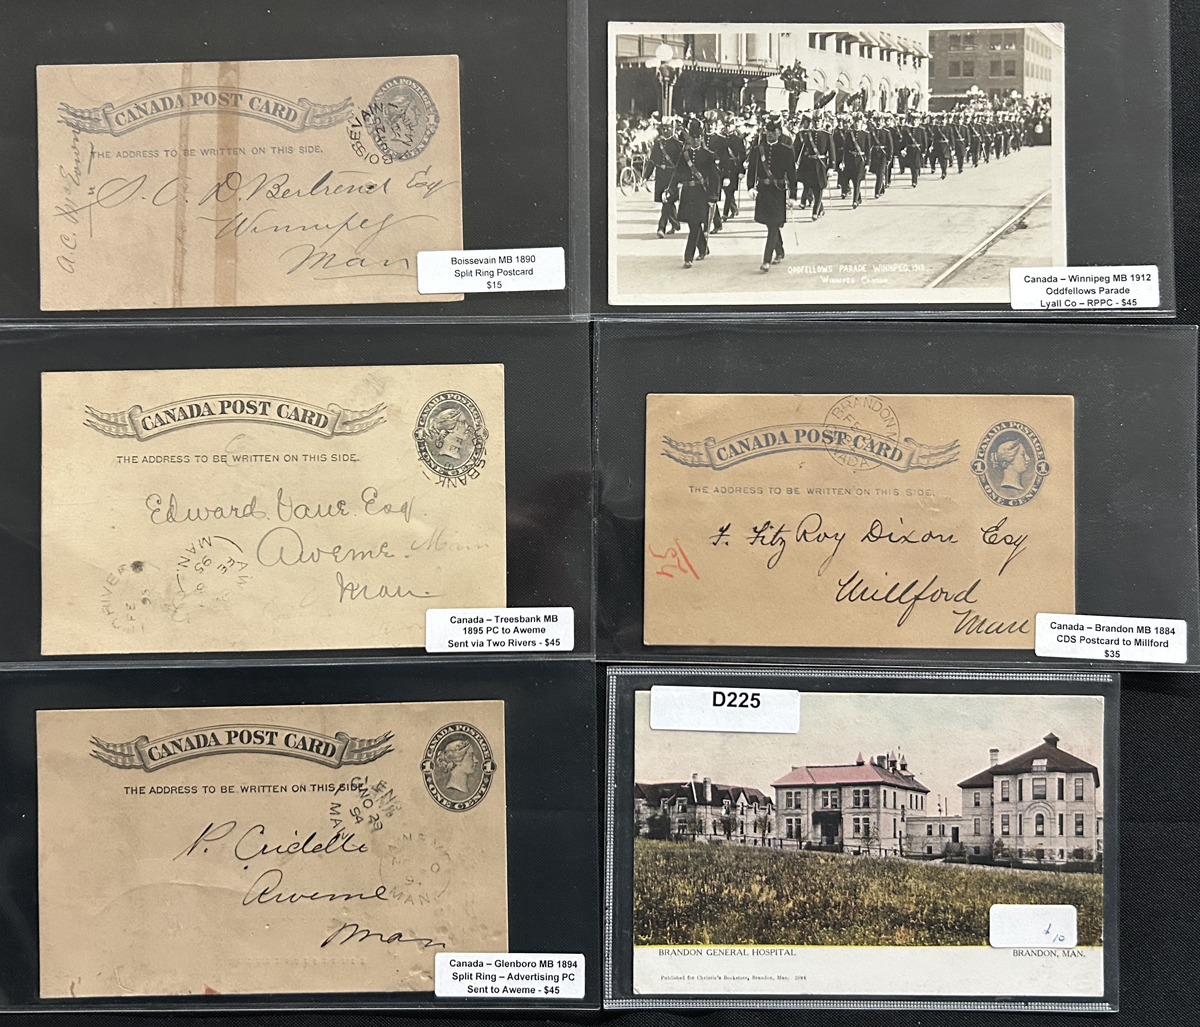 CANADA POST CARD
THE ADDRESS TO BE WRITTEN ON THIS SIDE.
D. Bertrend Esq
Winnipeg
Man
Boissevain MB 1890
Split Ring Postcard
$15
ODDFELLOWS PARADE WINNIPEG, 1912.
WINNIPEG CANADA
Canada – Winnipeg MB 1912
Oddfellows Parade
Lyall Co – RPPC - $45
CANADA POST CARD
THE ADDRESS TO BE WRITTEN ON THIS SIDE.
ONE CENT
Edward Vane Esq.
Aweme. Man
Man.
Canada – Treesbank MB
1895 PC to Aweme
Sent via Two Rivers - $45
CANADA POST CARD
BRANDON
CANADA POSTAGE
1 1
ONE CENT
THE ADDRESS TO BE WRITTEN ON THIS SIDE.
F. Fitz Roy Dixon Esq
Millford
Man
Canada – Brandon MB 1884
CDS Postcard to Millford
$35
CANADA POST CARD
CANADA POSTAGE
1 1
ONE CENT
THE ADDRESS TO BE WRITTEN ON THIS SIDE.
NO 28
94
MAN
P. Criddle
Aweme
Man
Canada – Glenboro MB 1894
Split Ring – Advertising PC
Sent to Aweme - $45
D225
$10
BRANDON GENERAL HOSPITAL
BRANDON, MAN.
Published for Christie's Bookstore, Brandon, Man.